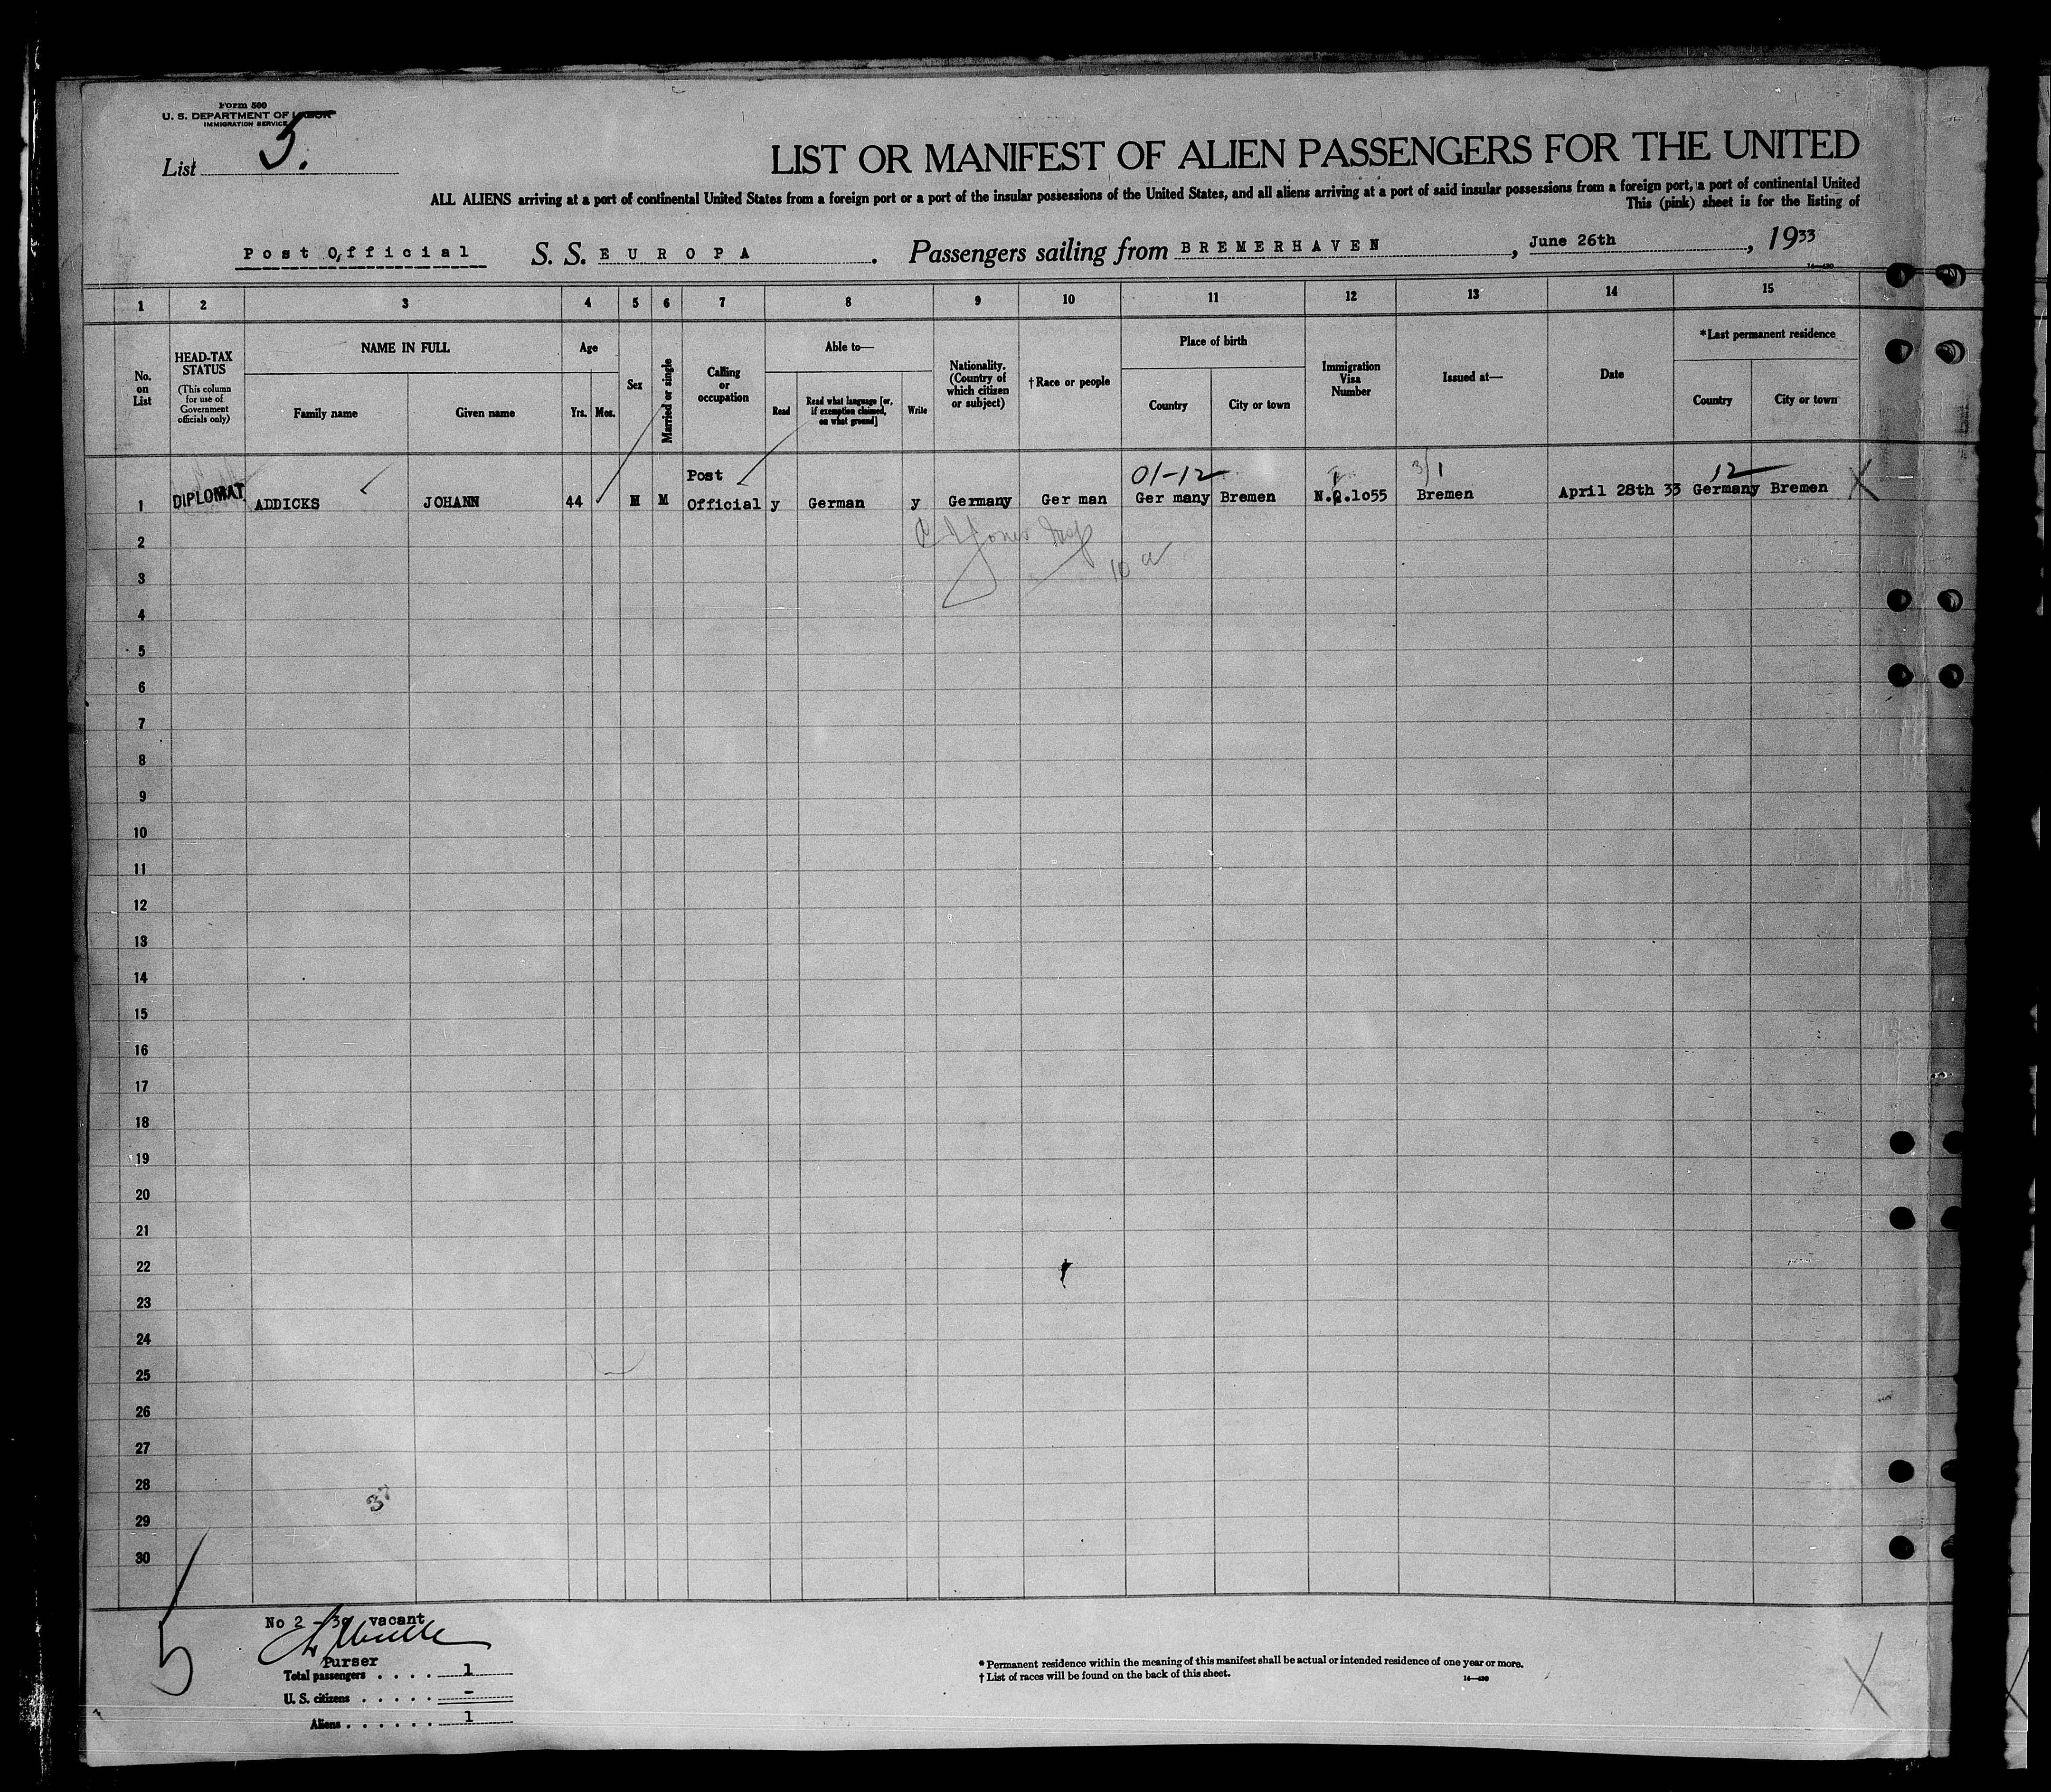 Form 500
U. S. DEPARTMENT OF LABOR
IMMIGRATION SERVICE
List 5.
LIST OR MANIFEST OF ALIEN PASSENGERS FOR THE UNITED
ALL ALIENS arriving at a port of continental United States from a foreign port or a port of the insular possessions of the United States, and all aliens arriving at a port of said insular possessions from a foreign port, a port of continental United
This (pink) sheet is for the listing of
Post Official S. S. EUROPA . Passengers sailing from BREMERHAVEN , June 26th , 1933
1 2 3 4 5 6 7 8 9 10 11 12 13 14 15
No. on List
HEAD-TAX STATUS
(This column for use of Government officials only)
NAME IN FULL
Family name
Given name
Age
Yrs.
Mos.
Sex
Married or single
Calling or occupation
Able to—
Read
Read what language [or, if exemption claimed, on what ground]
Write
Nationality. (Country of which citizen or subject)
†Race or people
Place of birth
Country
City or town
Immigration Visa Number
Issued at—
Date
*Last permanent residence
Country
City or town
01-12 3/1 12
1 DIPLOMAT ADDICKS JOHANN 44 M M Post Official y German y Germany Ger man Ger many Bremen N.Q.1o55 Bremen April 28th 33 Germany Bremen X
2
3
4
5
6
7
8
9
10
11
12
13
14
15
16
17
18
19
20
21
22
23
24
25
26
27
28
29
30
5
No 2 - 30 vacant
Purser
Total passengers . . . . 1
U. S. citizens . . . . . -
Aliens . . . . . . 1
* Permanent residence within the meaning of this manifest shall be actual or intended residence of one year or more.
† List of races will be found on the back of this sheet.
14—430
X